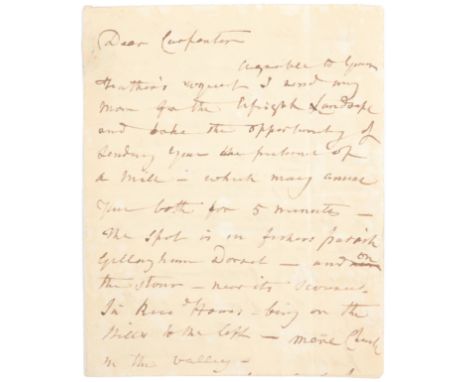 Dear Carpenter
agreeable to your
Father's request I send my
man for the Upright Landscape
and take the opportunity of
sending you the picture of
a Mill - which may amuse
you both for 5 minutes -
The spot is in fishers parish
Gillingham Dorset - and on
the stour - near its source
Sir Ric.d Hoares - being on the
Hills to the left - Church
in the valley -